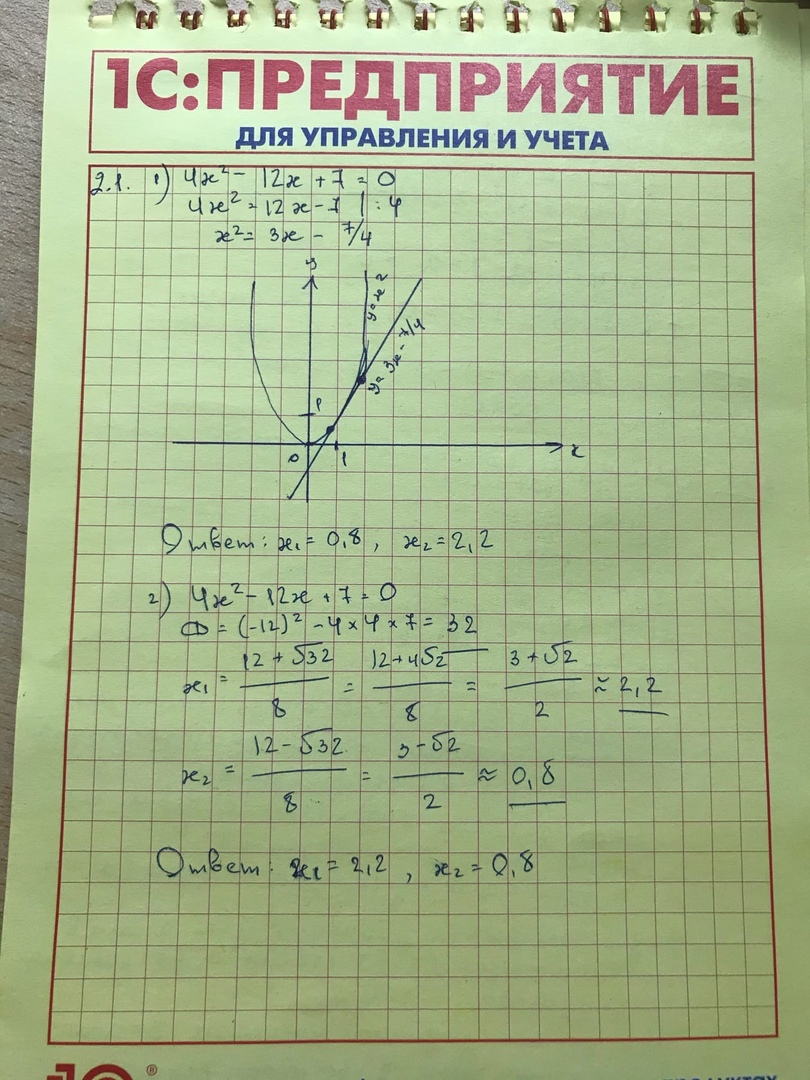 1С:ПРЕДПРИЯТИЕ
ДЛЯ УПРАВЛЕНИЯ И УЧЕТА
2.1. 1) 4x² - 12x + 7 = 0
4x² = 12x - 7 | : 4
x² = 3x - 7/4
y
y = x²
y = 3x - 7/4
1
0
1
x
Ответ: x₁ = 0,8, x₂ = 2,2
2) 4x² - 12x + 7 = 0
D = (-12)² - 4 × 4 × 7 = 32
x₁ = (12 + √32)/8 = (12 + 4√2)/8 = (3 + √2)/2 ≈ 2,2
x₂ = (12 - √32)/8 = (3 - √2)/2 ≈ 0,8
Ответ: x₁ = 2,2, x₂ = 0,8
1С ®